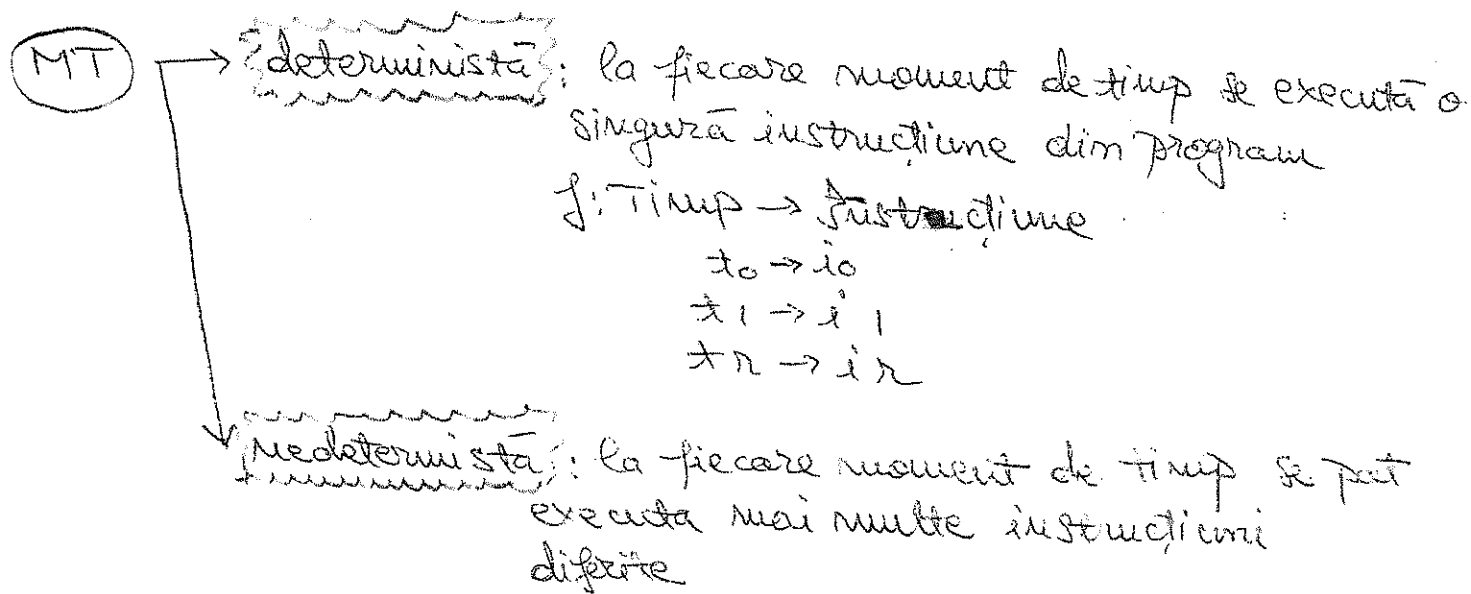 MT → deterministă : la fiecare moment de timp se execută o
singură instrucțiune din program
f: Timp → Instrucțiune
t0 → i0
t1 → i1
tn → in
nedetermistă : la fiecare moment de timp se pot
executa mai multe instrucțiuni
diferite